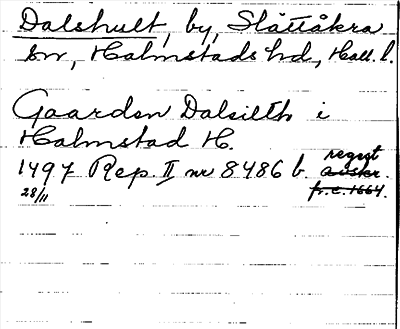 Dalshult, by, Slättåkra
sn, Halmstads hd, Hall. l.
Gaarden Dalsilth i
Halmstad H.
1497 Rep. II nr 8486 b. regest
avskr.
28/11 fr. c. 1664.